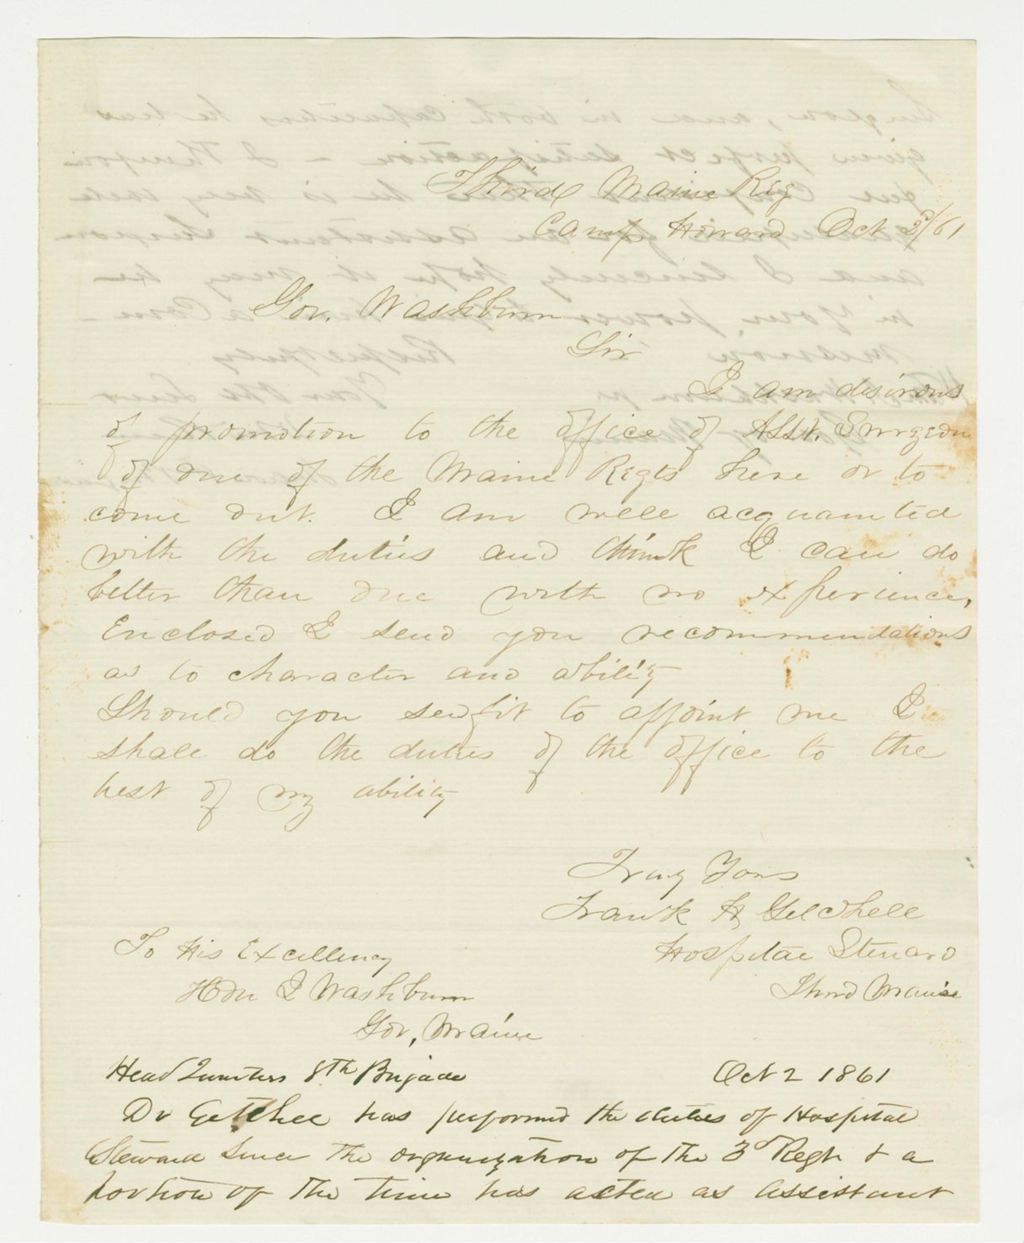 Third Maine Reg
Camp Howard Oct 2d/61
Gov. Washburn
Sir
I am desirous
of promotion to the office of Asst. Surgeon
of one of the Maine Regts here or to
come out. I am well acquainted
with the duties and think I can do
better than one with no experience,
Enclosed I send you recommendations
as to character and ability
Should you see fit to appoint me I
shall do the duties of the office to the
best of my ability
Truly Yours
Frank H Getchell
Hospital Steward
Third Maine
To His Excellency
Hon I Washburn
Gov, Maine
Head Quarters 8th Brigade Oct 2 1861
Dr Getchel has performed the duties of Hospital
Steward since the organization of the 3d Regt & a
portion of the time has acted as assistant